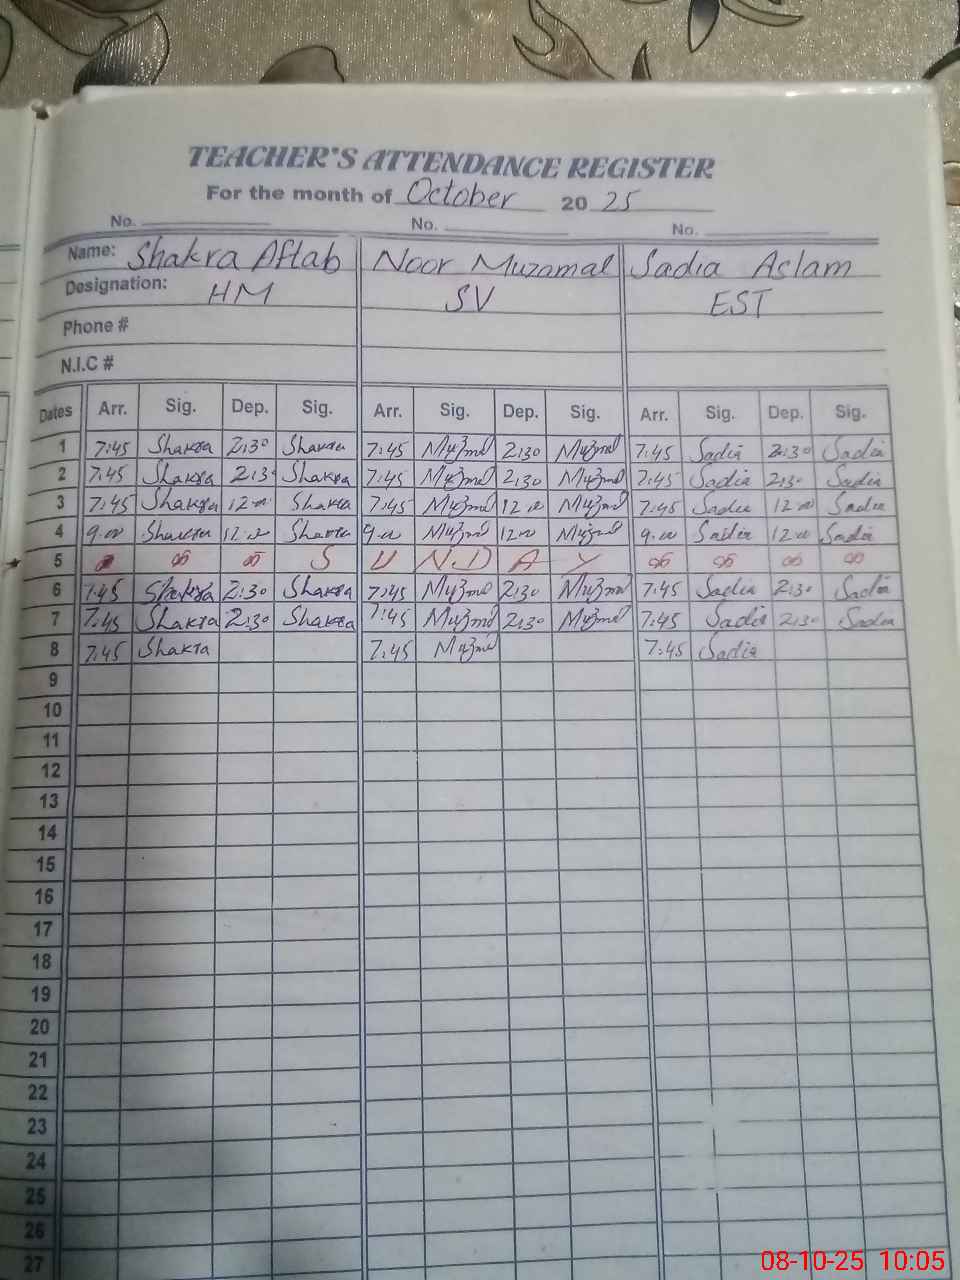 TEACHER'S ATTENDANCE REGISTER
For the month of October 2025
No. No. No.
Name: Shakra Aftab Noor Muzamal Sadia Aslam
Designation: HM SV EST
Phone #
N.I.C #
Dates Arr. Sig. Dep. Sig. Arr. Sig. Dep. Sig. Arr. Sig. Dep. Sig.
1 7:45 Shakra 2:30 Shakra 7:45 Muzmal 2:30 Muzmal 7:45 Sadia 2:30 Sadia
2 7:45 Shakra 2:3 Shakra 7:45 Muzmal 2:30 Muzmal 7:45 Sadia 2:30 Sadia
3 7:45 Shakra 12:00 Shakra 7:45 Muzmal 12:00 Muzmal 7:45 Sadia 12:00 Sadia
4 9:00 Shakra 12:00 Shakra 9:00 Muzmal 12:00 Muzmal 9:00 Sadia 12:00 Sadia
5 S U N D A Y
6 7:45 Shakra 2:30 Shakra 7:45 Muzmal 2:30 Muzmal 7:45 Sadia 2:30 Sadia
7 7:45 Shakra 2:30 Shakra 7:45 Muzmal 2:30 Muzmal 7:45 Sadia 2:30 Sadia
8 7:45 Shakra 7:45 Muzmal 7:45 Sadia
9
10
11
12
13
14
15
16
17
18
19
20
21
22
23
24
25
26
27
08-10-25 10:05